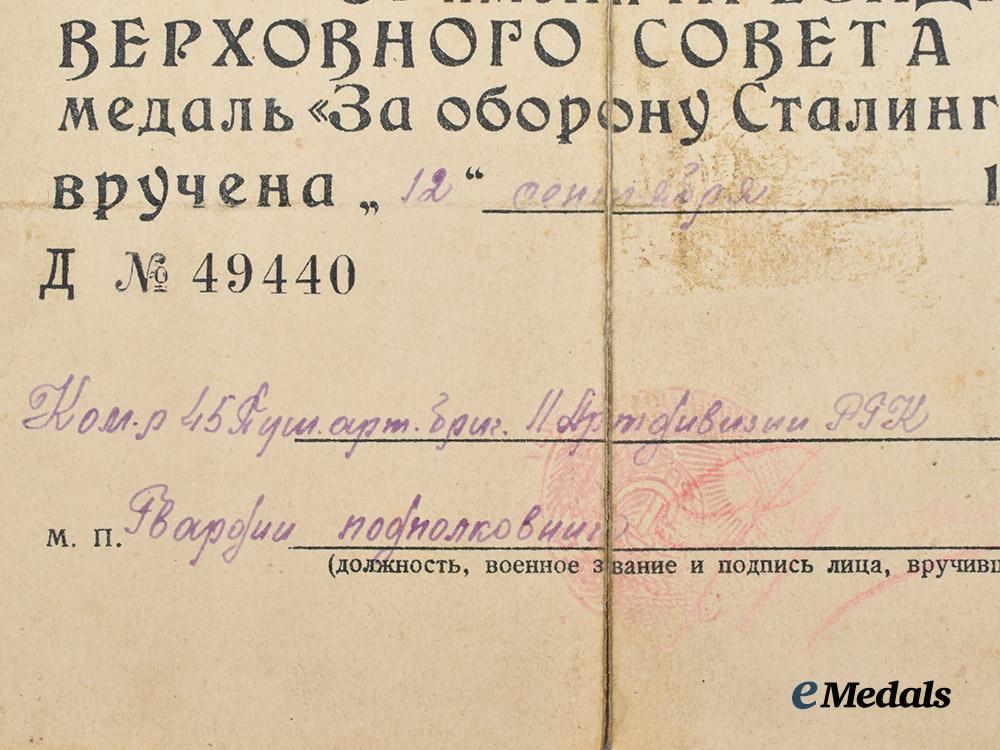 ВЕРХОВНОГО СОВЕТА
медаль «За оборону Сталинг
вручена „12“ сентября 1
Д № 49440
Ком-р 45 Пуш. арт. бриг. 11 Артдивизии РГК
Гвардии подполковник
м. п.
(должность, военное звание и подпись лица, вручивш
eMedals